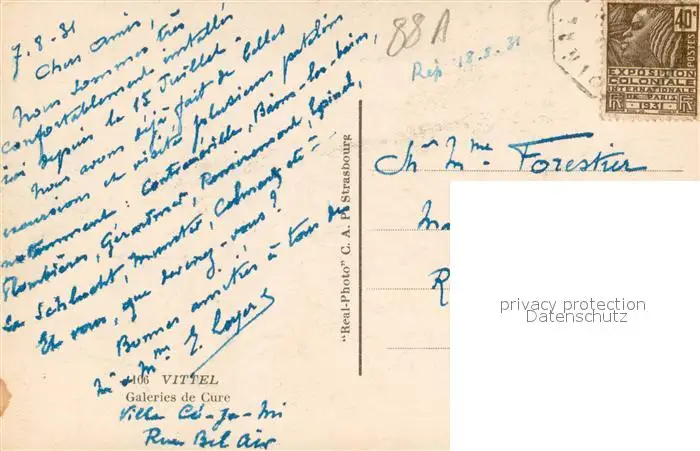 7.8-31
Chers amis,
Nous sommes très
confortablement installés
ici depuis le 15 Juillet.
Nous avons déjà fait de belles
excursions et visité plusieurs patelins
notamment : Contrexéville, Bains-les-bains,
Plombières, Gérardmer, Remiremont, Epinal,
La Schlucht, Munster, Colmar, etc
Et vous, que devenez-vous ?
Bonnes amitiés à tous de
Mr & Mme E. Loyer
106 VITTEL
Galeries de Cure
Villa Cé-Ja-Mi
Rue Bel Air
"Real-Photo" C. A. P. Strasbourg
88A
Rép 18.8.31
40c
POSTES
EXPOSITION
COLONIALE
INTERNATIONALE
DE PARIS
RF 1931 RF
Mme Forestier
R
privacy protection
Datenschutz